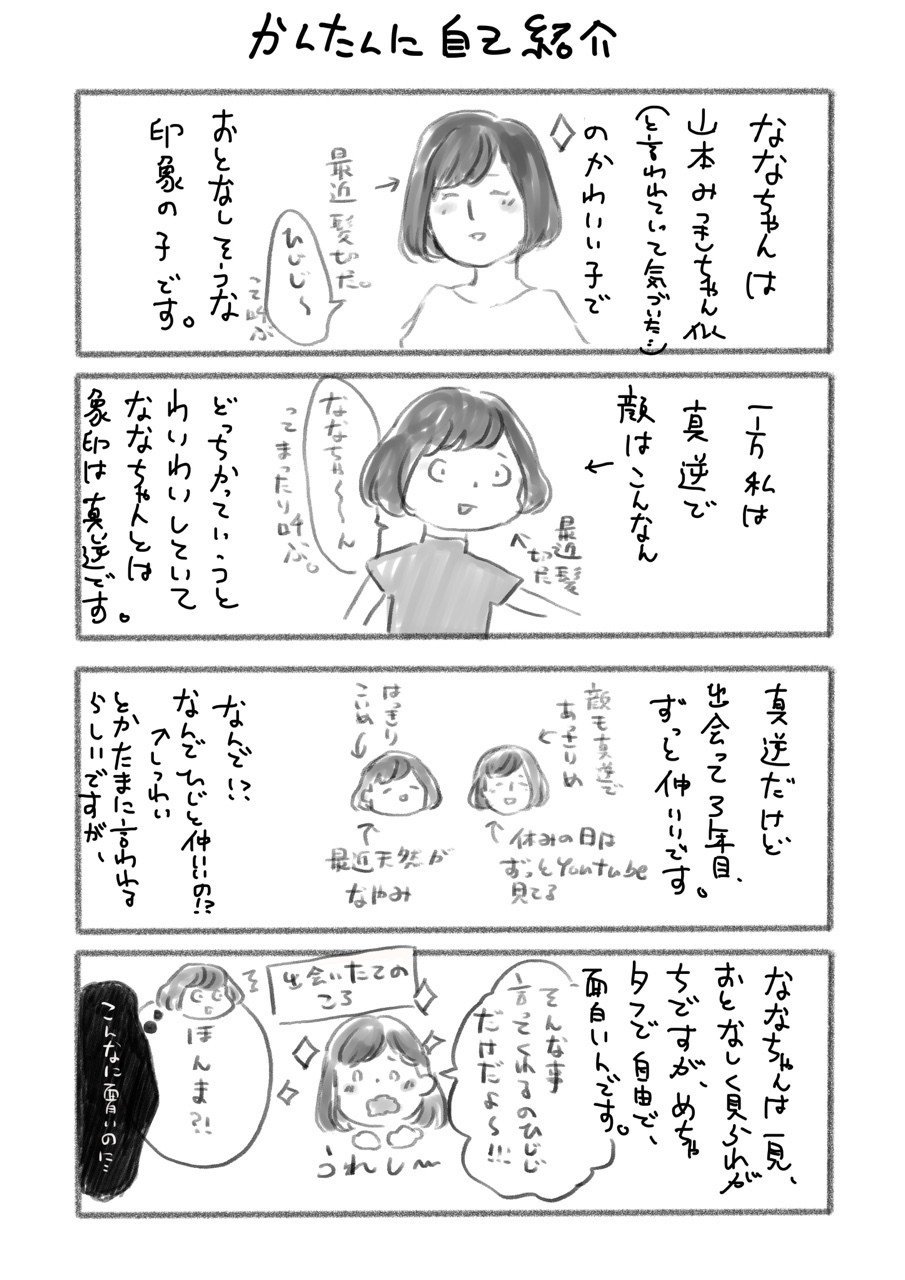 かんたんに自己紹介
ななちゃんは
山本みづきちゃん似
(と言われていって気づいた…)
のかわいい子で
最近髪切った。
ひじじ～
って呼ぶ
おとなしそうな
印象の子です。
一方私は
真逆で
顔はこんなん
最近髪
切った
ななちゃ～～ん
ってまったり呼ぶ。
どっちかっていうと
わいわいしていて
ななちゃんとは
象印は真逆です。
真逆だけど
出会って3年目、
ずっと仲いいです。
顔も真逆で
あっさりめ
はっきり
こいめ
休みの日は
ずっとYoutube
見てる
最近天然が
なやみ
なんで!?
なんでひじと仲いいの!?
しつれい
とかたまに言われる
らしいですが、
ななちゃんは一見、
おとなしく見られが
ちですが、めちゃ
タフで自由で、
面白いんです。
そんな事
言ってくれるのひじじ
だけだよ～!!!
出会いたての
ころ
うれし～
ほんま?!
こんなに面白いのに…